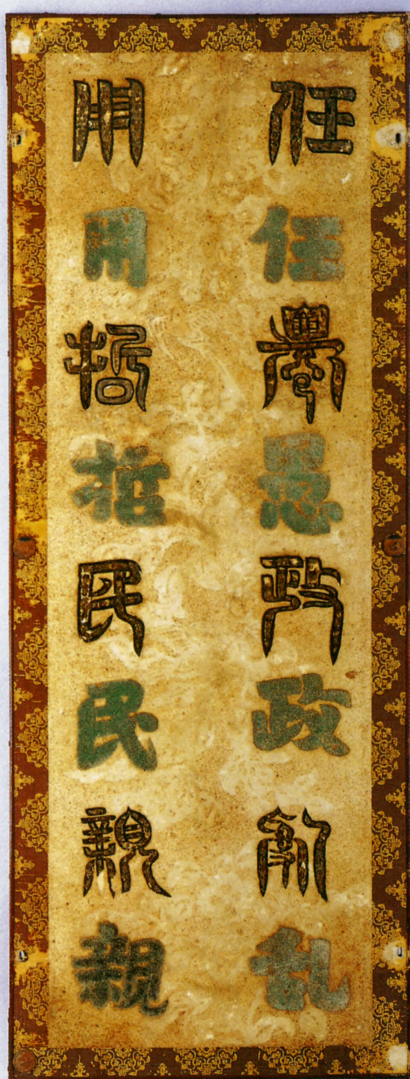 任任愚愚政政乱乱
用用哲哲民民親親